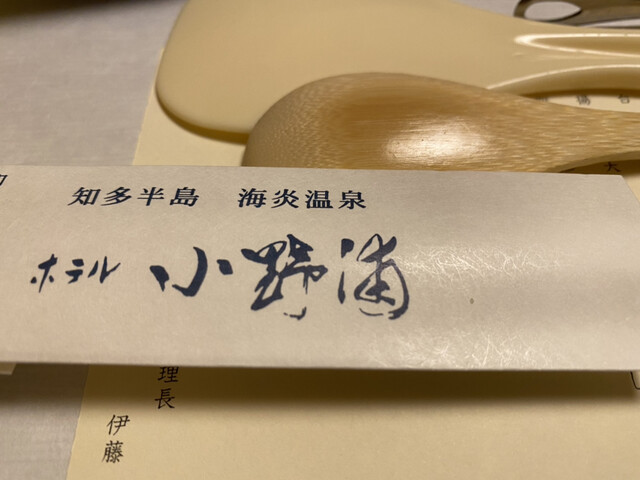 知多半島 海炎温泉
ホテル 小野浦
理長
伊藤